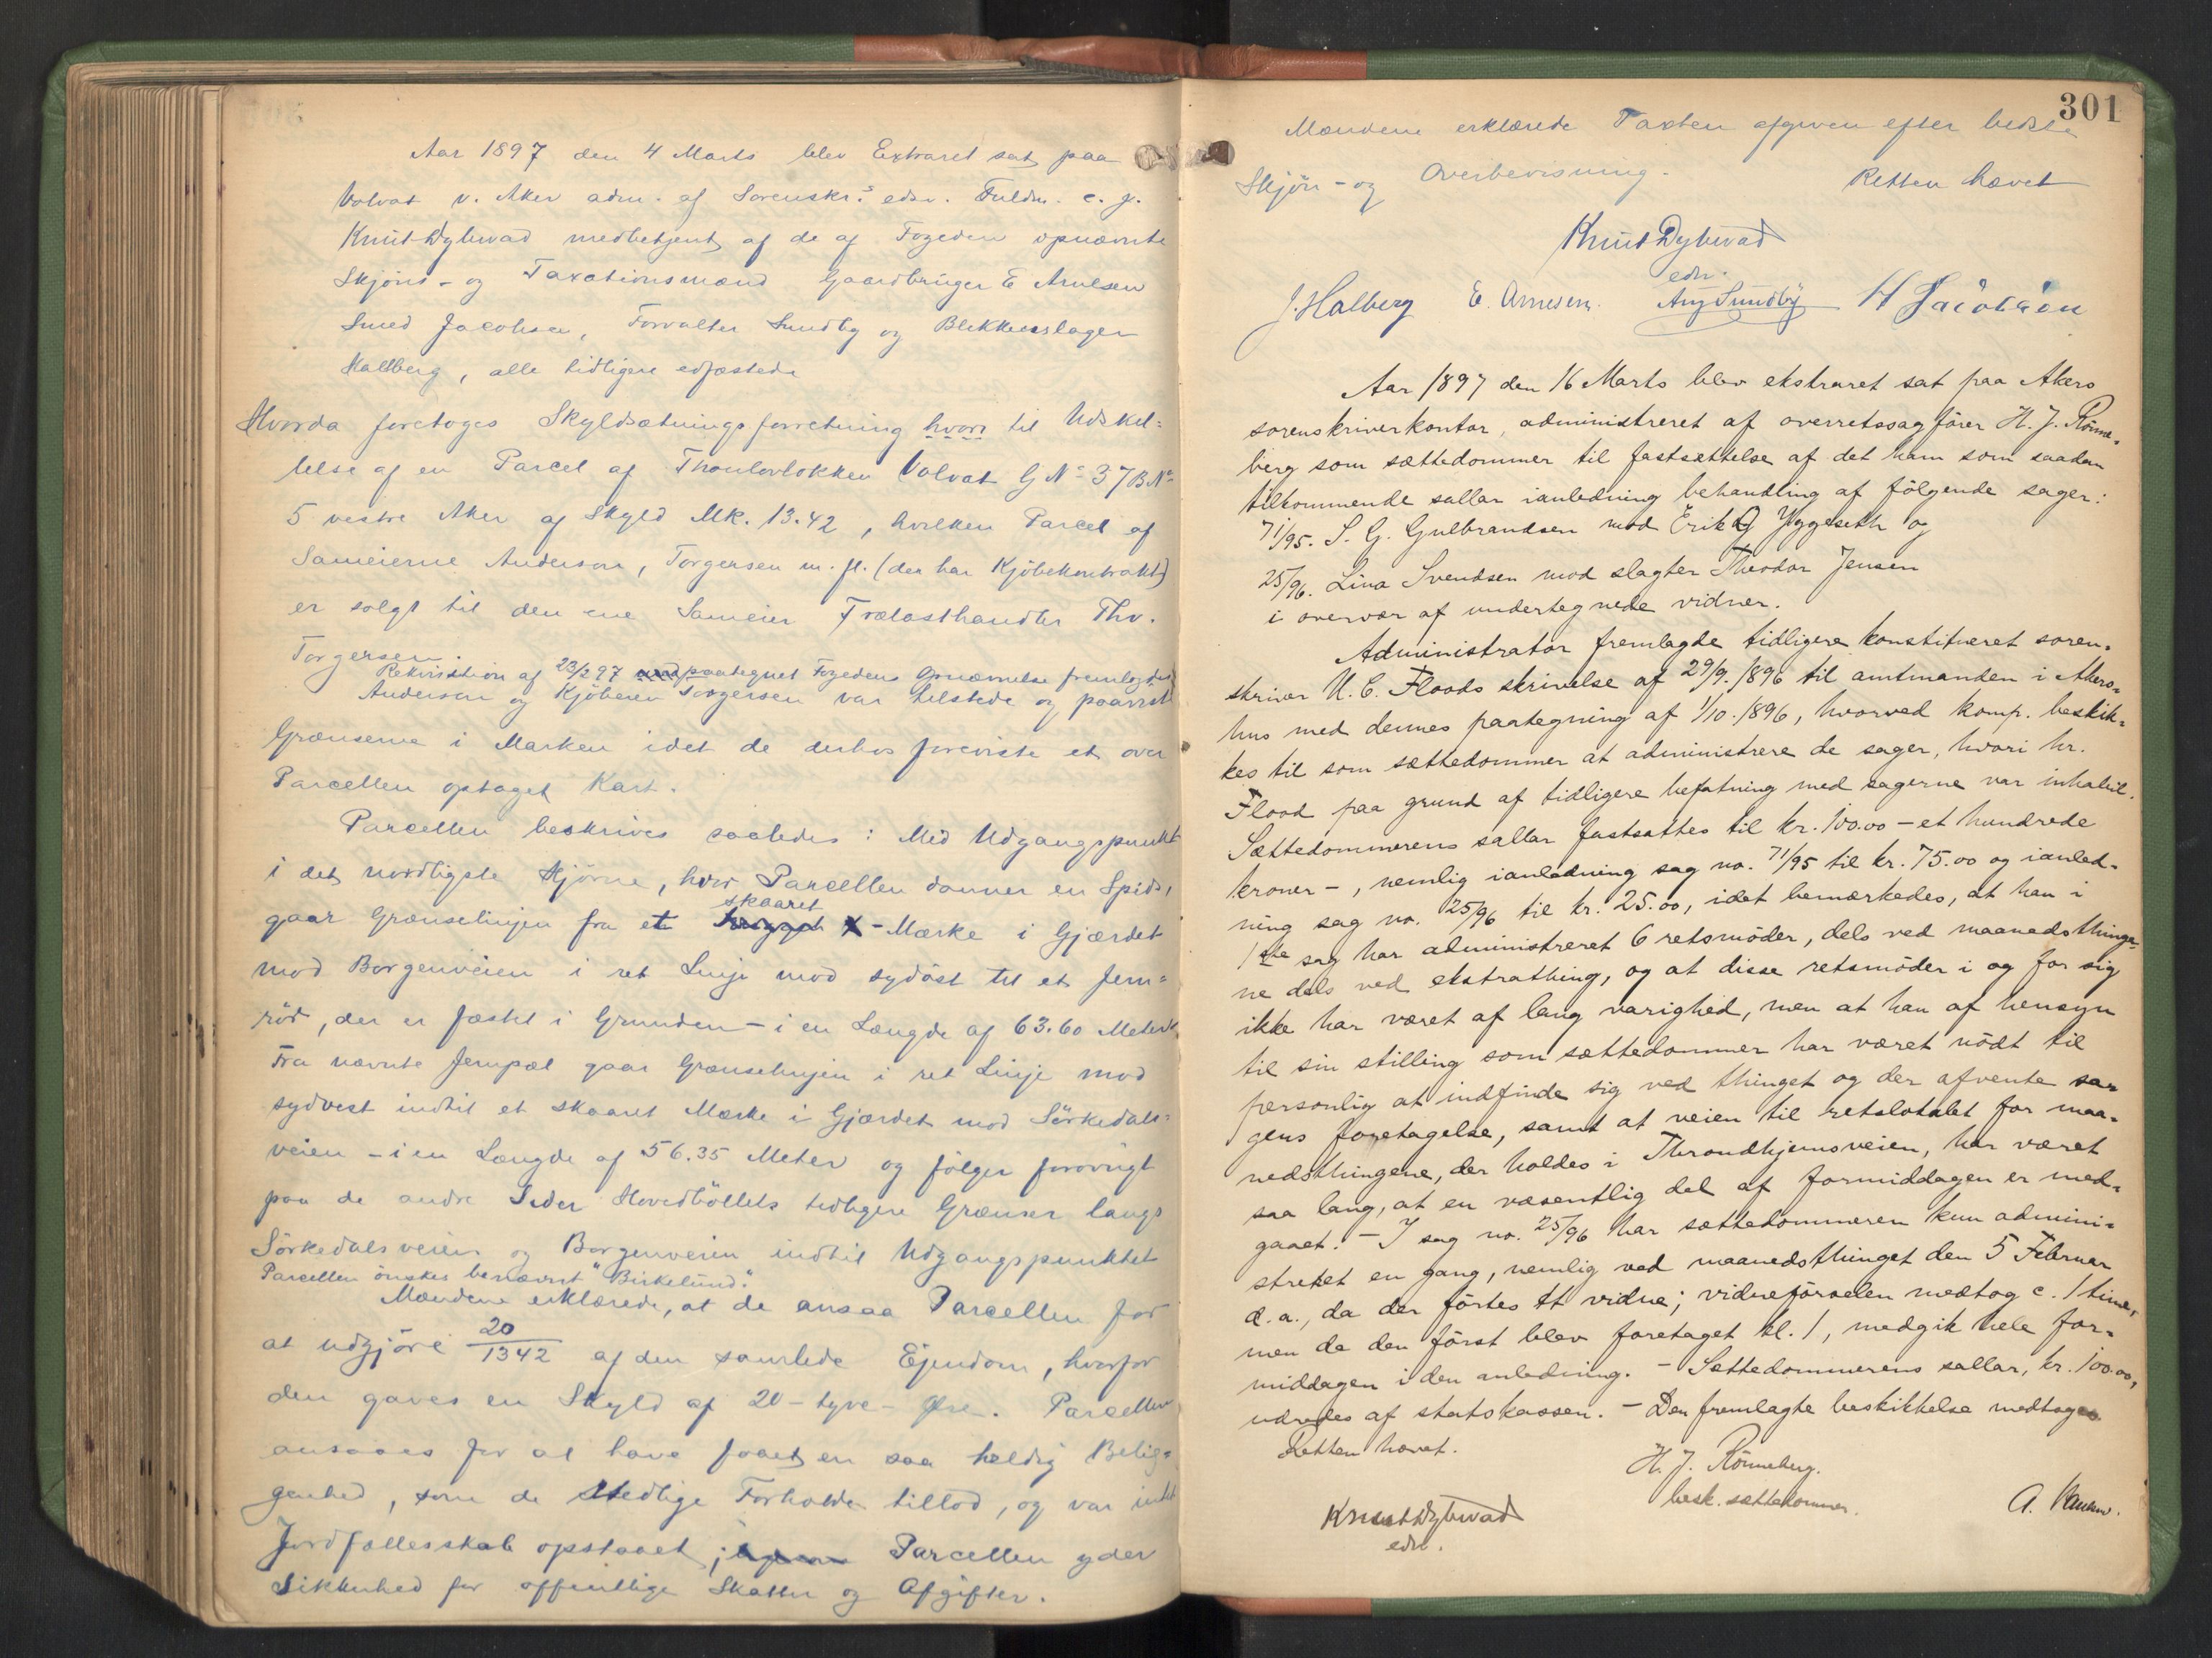 Aar 1897 den 4 Marts blev Extraret sat paa
Volvat v. Aker adm. af Sorenskr.s edsv. Fuldm. c. j.
Knut Dybwad medbetjent af de af Fogeden opnævnte
Skjöns- og Taxationsmænd Gaardbruger E Arnesen
Smed Jacobsen, Forvalter Sundby og Blikkenslager
Hallberg, alle tidligere edfæstede
Hvorda foretoges Skyldsætningsforretning hvori til Udskil=
lelse af en Parcel af Thaulovløkken Volvat G No 37 B No
5 vestre Aker af Skyld Mk. 13.42, hvilken Parcel af
Sameierne Anderson, Torgersen m. fl. (der har Kjöbekontrakt)
er solgt til den ene Sameier Trælasthandler Thv.
Torgersen.
Rekvisition af 23/2 97 med paategnet Fogedens Opnævnelse fremlagdes
Anderson og Kjöberen Torgersen var tilstede og paaviste
Grænserne i Marken idet de derhos foreviste et over
Parcellen optaget Kart.
Parcellen beskrives saaledes: Med Udgangspunkt
i det nordligste Hjörne, hvor Parcellen danner en Spids,
skaaret
gaar Grænselinjen fra et hugget X-Mærke i Gjærdet
mod Borgenveien i ret Linje mod sydöst til et Jern=
rör, der er fæstet i Grunden - i en Længde af 63.60 Meter.
Fra nævnte Jernpæl gaar Grænselinjen i ret Linje mod
sydvest indtil et skaaret Mærke i Gjærdet mod Sörkedals=
veien - i en Længde af 56.35 Meter og fölger forövrigt
paa de andre Sider Hovedböllets tidligere Grænser langs
Sörkedalsveien og Borgenveien indtil Udgangspunktet
Parcellen önskes benævnt "Birkelund".
Mændene erklærede, at de ansaa Parcellen for
at udgjöre 20/1342 af den samlede Ejendom, hvorfor
den gaves en Skyld af 20 - tyve - Øre. Parcellen
ansaaes for at have faaet en saa heldig Belig=
genhed, som de stedlige Forholde tillod, og var intet
Jordfællesskab opstaaet; Parcellen yder
Sikkerhed for offentlige Skatter og Afgifter.
301
Mændene erklærede Taxten afgiven efter bedste
Skjön- og Overbevisning.
Retten hævet
Knut Dybwad
edsv.
J. Halberg E. Arnesen. Aug Sundby H Jacobsen
Aar 1897 den 16 Marts blev ekstraret sat paa Akers
sorenskriverkontor, administreret af overretssagförer H. J. Rönne=
berg som sættedommer til fastsættelse af det ham som saadan
tilkommende sallar ianledning behandling af fölgende sager:
71/95. S. G. Gulbrandsen mod Erik O Yggeseth og
25/96. Lina Svendsen mod slagter Theodor Jensen
i overvær af undertegnede vidner.
Administrator fremlagde tidligere konstitueret soren=
skriver U. C. Floods skrivelse af 29/9. 1896 til amtmanden i Akers=
hus med dennes paategning af 1/10. 1896, hvorved komp. beskik=
kes til som sættedommer at administrere de sager, hvori hr.
Flood paa grund af tidligere befatning med sagerne var inhabil.
Sættedommerens sallar fastsattes til kr. 100.00 - et hundrede
kroner -, nemlig ianledning sag no. 71/95 til kr. 75.00 og ianled=
ning sag no. 25/96 til kr. 25.00, idet bemærkedes, at han i
1ste sag har administreret 6 retsmöder, dels ved maanedsthinge=
ne dels ved ekstrathing, og at disse retsmöder i og for sig
ikke har været af lang varighed, men at han af hensyn
til sin stilling som sættedommer har været nödt til
personlig at indfinde sig ved thinget og der afvente sa=
gens foretagelse, samt at veien til retslokalet for maa=
nedsthingene, der holdes i Throndhjemsveien, har været
saa lang, at en væsentlig del af formiddagen er med=
gaaet. - I sag no. 25/96 har sættedommeren kun admini=
streret en gang, nemlig ved maanedsthinget den 5 Februar
d. a., da der förtes et vidne; vidneförselen medtog c. 1 time,
men da den först blev foretaget kl. 1, medgik hele for=
middagen i den anledning. - Sættedommerens sallar, kr. 100.00,
udredes af statskassen. - Den fremlagte beskikkelse medtages
Retten hævet.
H. J. Rönneberg.
besk. sættedommer.
Knut Dybwad
edsv.
A.